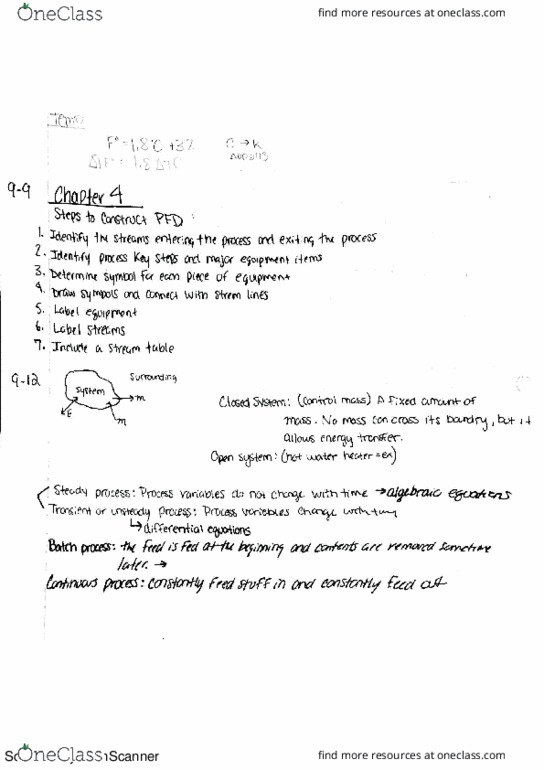 OneClass
find more resources at oneclass.com
Temp
F° = 1.8°C + 32
C → K
ΔF° = 1.8 Δ°C
9-9
Chapter 4
Steps to Construct PFD:
1. Identify the streams entering the process and exiting the process
2. Identify process key steps and major equipment items
3. Determine symbol for each piece of equipment
4. Draw symbols and connect with strem lines
5. Label equipment
6. Label streams
7. Include a stream table
9-12
Surrounding
System
m
E
m
Closed System: (control mass) A fixed amount of
mass. No mass can cross its boundry, but it
allows energy transfer.
Open system: (hot water heater = ex)
Steady process: Process variables do not change with time → algebraic equations
Transient or unsteady process: Process variables change with time
↳ differential equations
Batch process: the feed is fed at the beginning and contents are removed sometime
later. →
Continuous process: constantly feed stuff in and constantly feed out
OneClass
Scanner
find more resources at oneclass.com